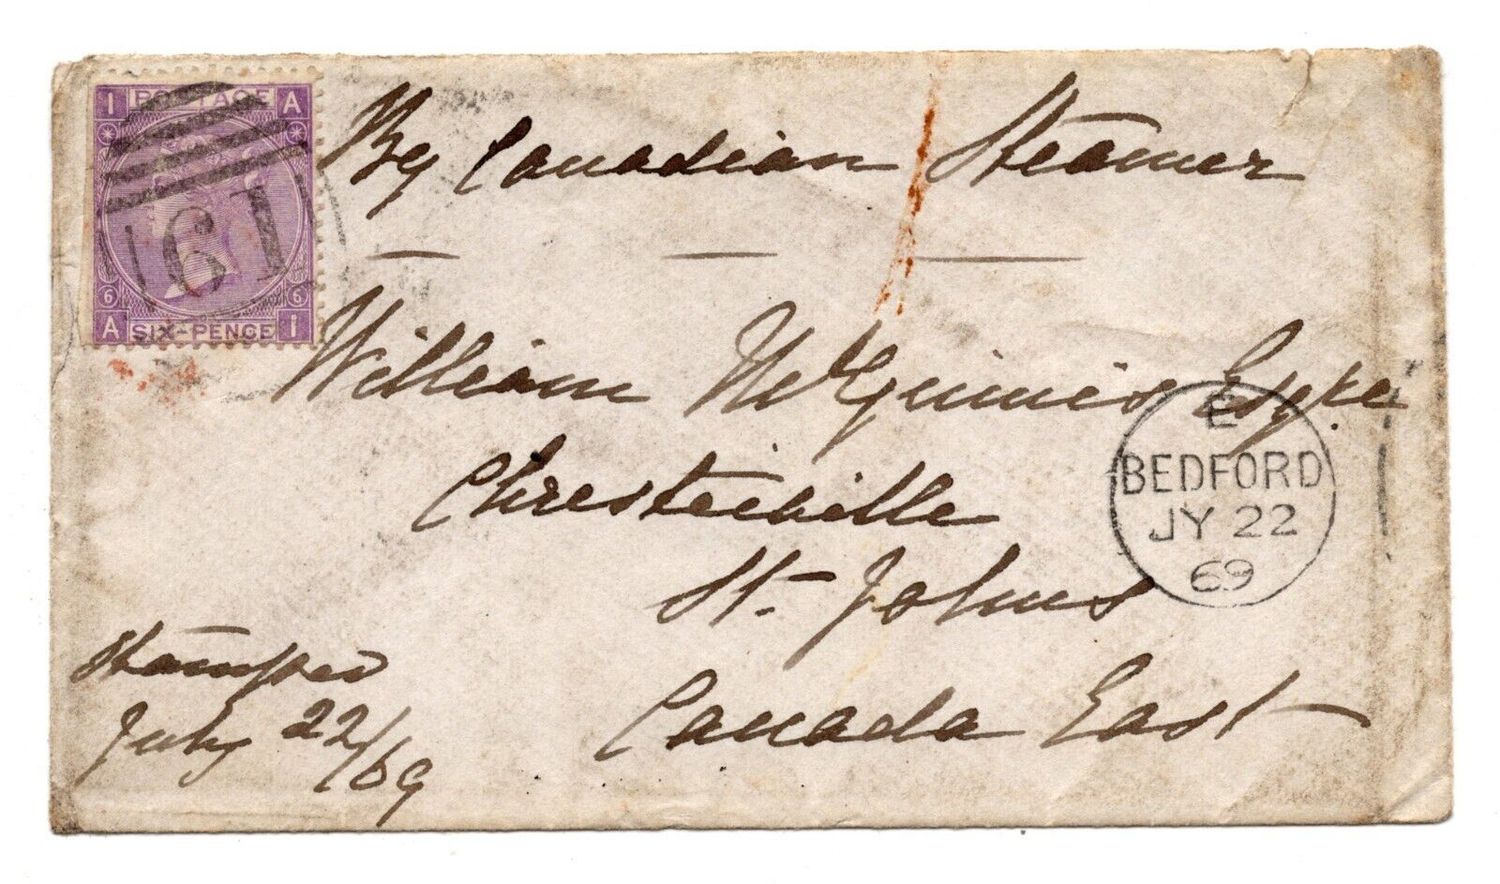 I POSTAGE A
61
6 6
A SIX-PENCE I
By Canadian Steamer
William McGinnis Esqre
Christieville
St. Johns
Canada East
E
BEDFORD
JY 22
69
Stamped
July 22/69